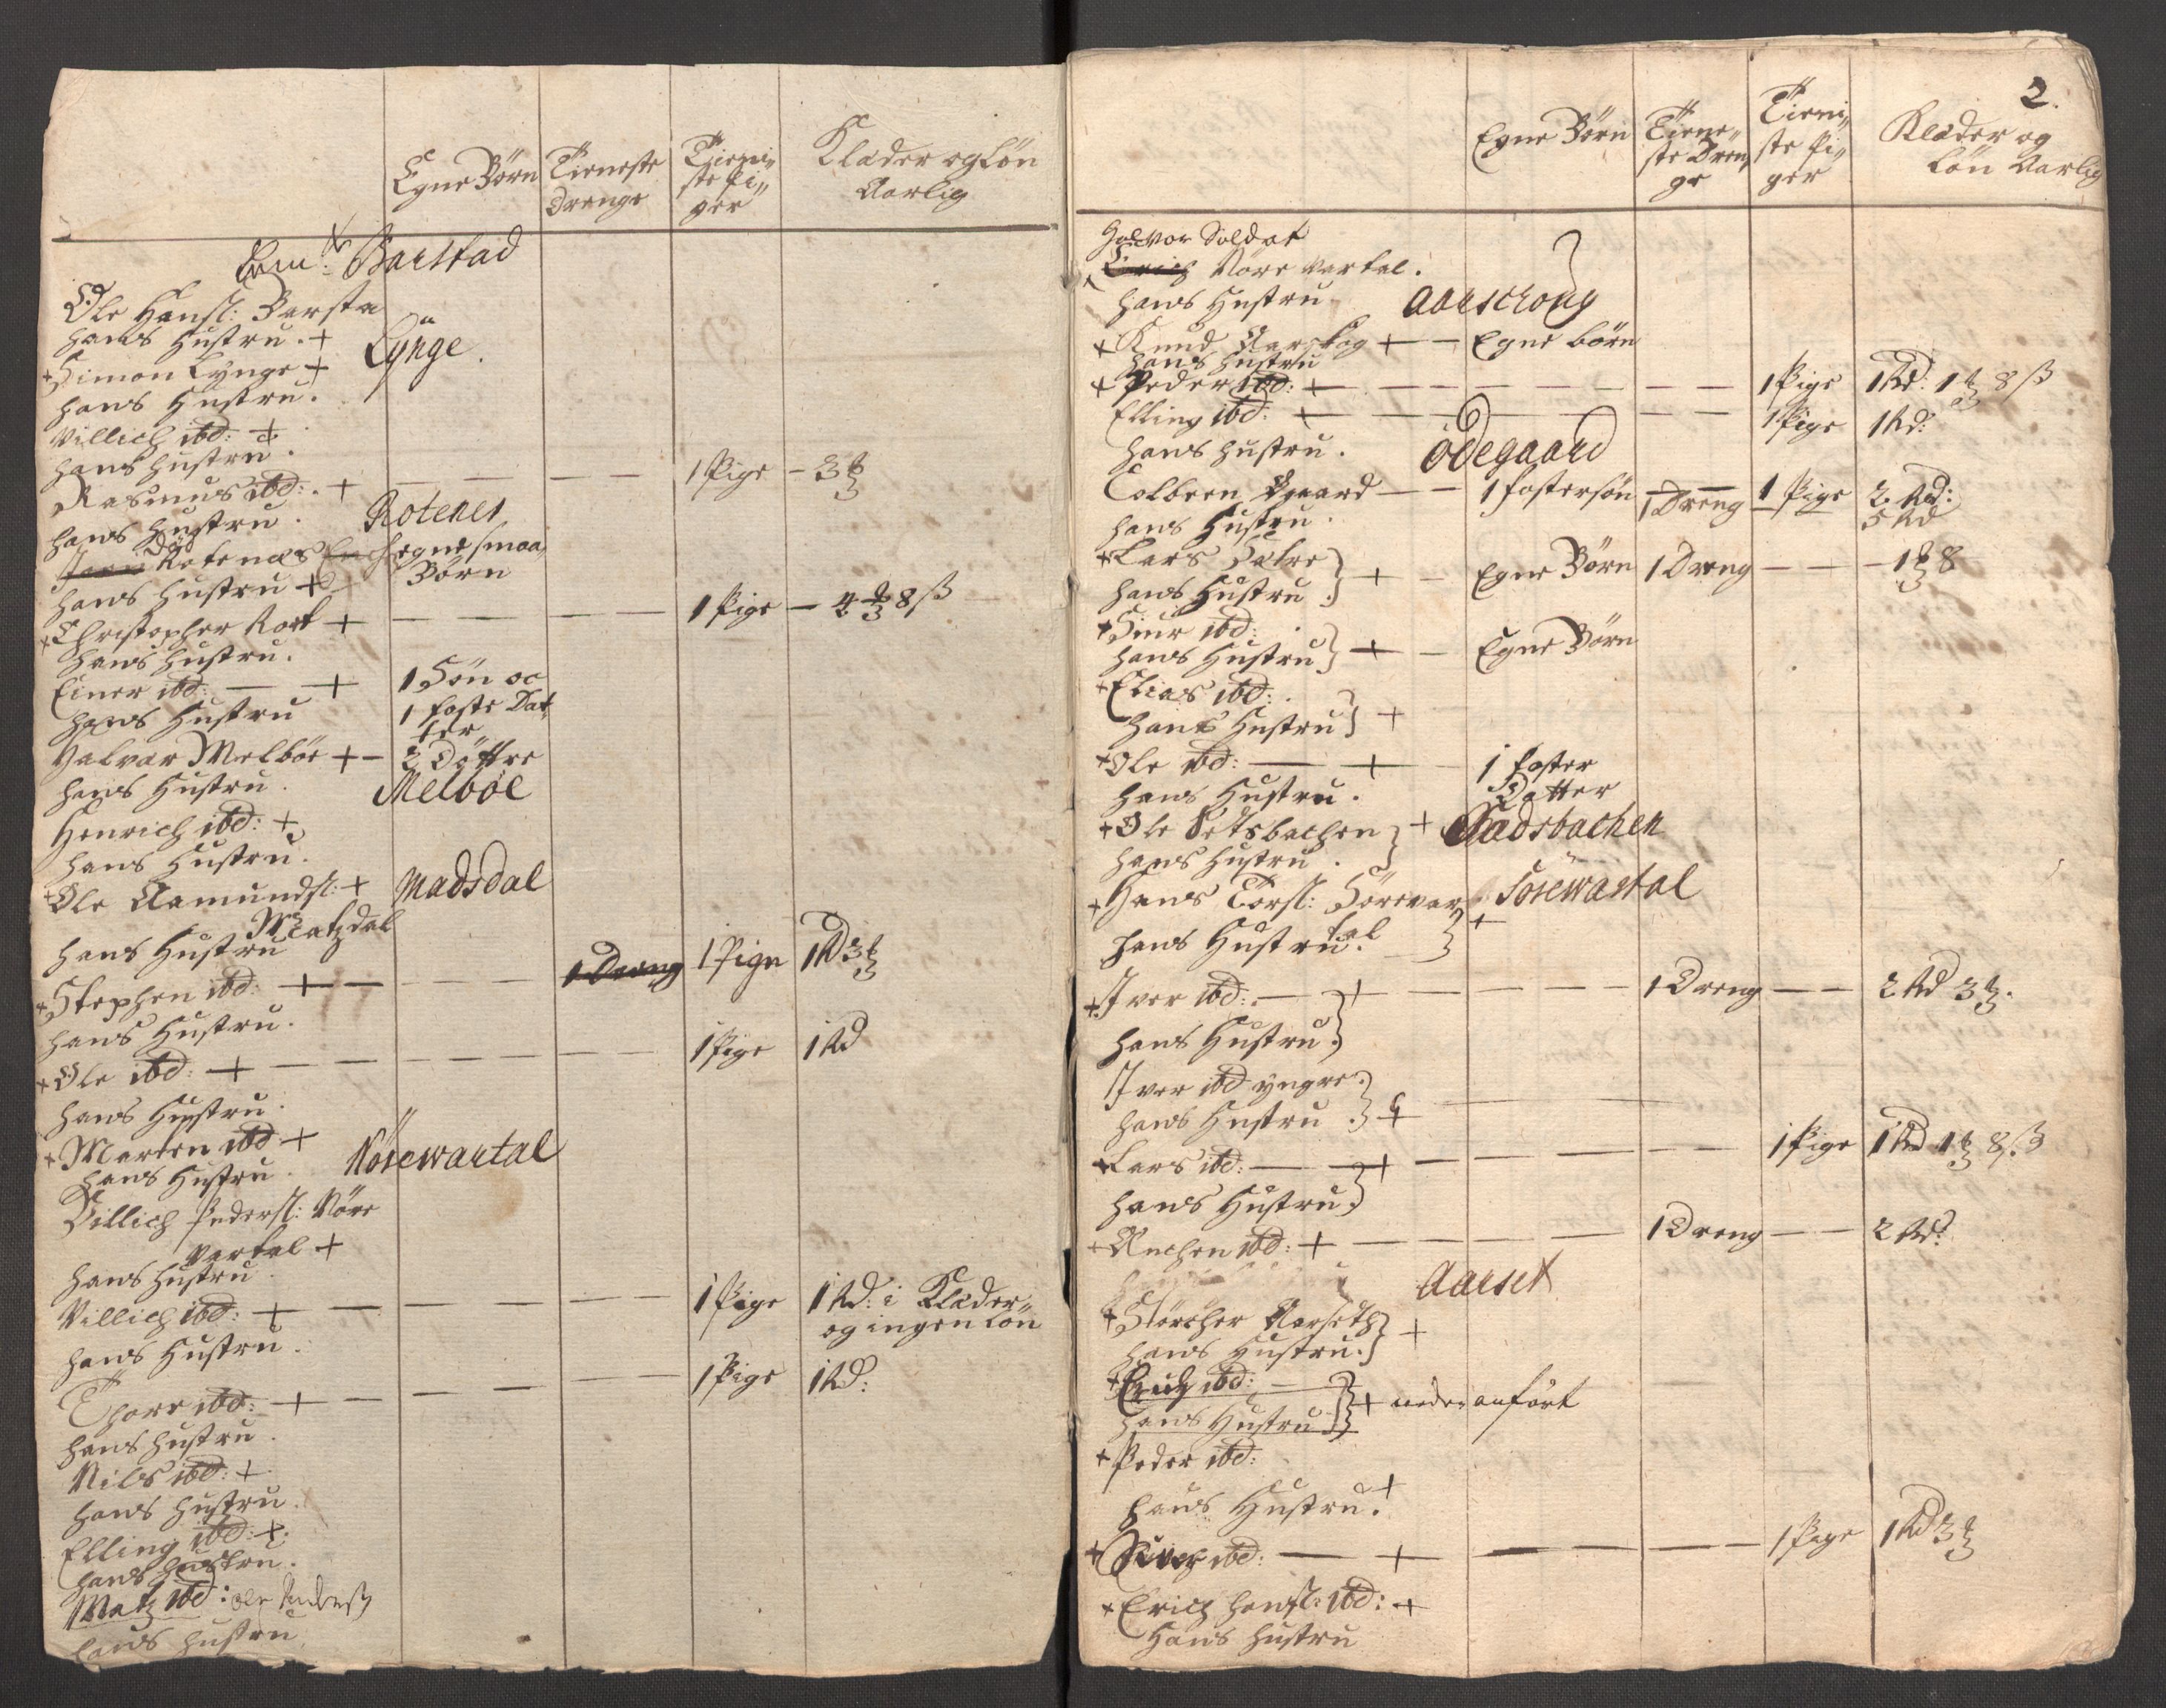 Egne Börn
Tieneste Drenge
Tieni„ ste Pi„ ger
Klæder og Løn Aarlig
Barstad
Ole Hansl: Barsta
hans Hustru. +
Lynge.
+ Simon Lynge +
hans Hustru.
Villich ibd: +
hans hustru.
Rasmus ibd: . + — — — 1 Pige – 3
hans hustru.
Rotenes
Rotenes egne smaa Börn
hans Hustru +
+ Christopher Rort + — — — 1 Pige – 4 8 ß
hans hustru.
Einer ibd: — + 1 Sön oc
hans Hustru 1 foste Dat„
ter
Halvar Melböe + – 2 Döttre
hans Hustru.
Melböe
Henrich ibd: +
hans Hustru.
+ Ole Aamundsl: + Madsdal
Matzdal
hans Hustru
+ Stephen ibd: + — — — 1 Dreng 1 Pige 1 Rd 3
hans Hustru.
+ Ole ibd: + — — — 1 Pige 1 Rd
hans Hustru.
+ Marten ibd +
hans Hustru.
Nörewartal
Villich Pedersl: Nöre
vartal +
hans Hustru.
Villich ibd: + — — — 1 Pige 1 Rd: i Klæder„
og ingen Lön
hans Hustru.
Thore ibd: + — — — 1 Pige 1 Rd:
hans hustru.
Nils ibd: +
hans hustru.
Elling ibd: +
hans hustru.
Matz ibd: Ole
hans hustru
2.
Egne Börn
Tiene„ ste Dren„ ge
Tieni„ ste Pi„ ger
Klæder og Lön Aarlig
Halvor Soldat
Nöre vartal.
hans Hustru
Aarschoug
+ Knud Aarskog + — Egne börn
hans hustru
+ Peder ibd: + — — — 1 Pige 1 Rd: 1 8 ß
Elling ibd: + — — — 1 Pige 1 Rd:
hans hustru.
Ödegaard
Colbern Ögaard — — 1 fostersön 1 Dreng 1 Pige 2 Rd:
5 Rd
hans Hustru.
+ Lars Sætre
hans Hustru } + – Egne Börn 1 Dreng — — 1 8
+ Siur ibd:
hans Hustru } + – Egne Börn
+ Elias ibd:
hans Hustru } +
+ Ole ibd: — + 1 foster Datter
hans Hustru.
+ Ole Setsbachen } + Sadsbachen
hans hustru.
+ Hans Torsl: Sörevar„ Sörewartal
tal
hans Hustru. } +
+ Iver ibd: — + — — — 1 Dreng — — 2 Rd 3
hans Hustru.
Iver ibd yngre
hans Hustru. } +
+ Lars ibd: — + — — — 1 Pige 1 Rd 1 8 ß
hans Hustru.
+ Anchen ibd: + — — — 1 Dreng — — 2 Rd
Aarset
+ Störcher Aarseth
hans Hustru. } +
+ Erich ibd:
hans Hustru } + neden anfört
+ Peder ibd:
hans Hustru. +
+ ibd: — + — — 1 Pige 1 Rd 3
+ Erich Hansl: ibd: +
Hans hustru